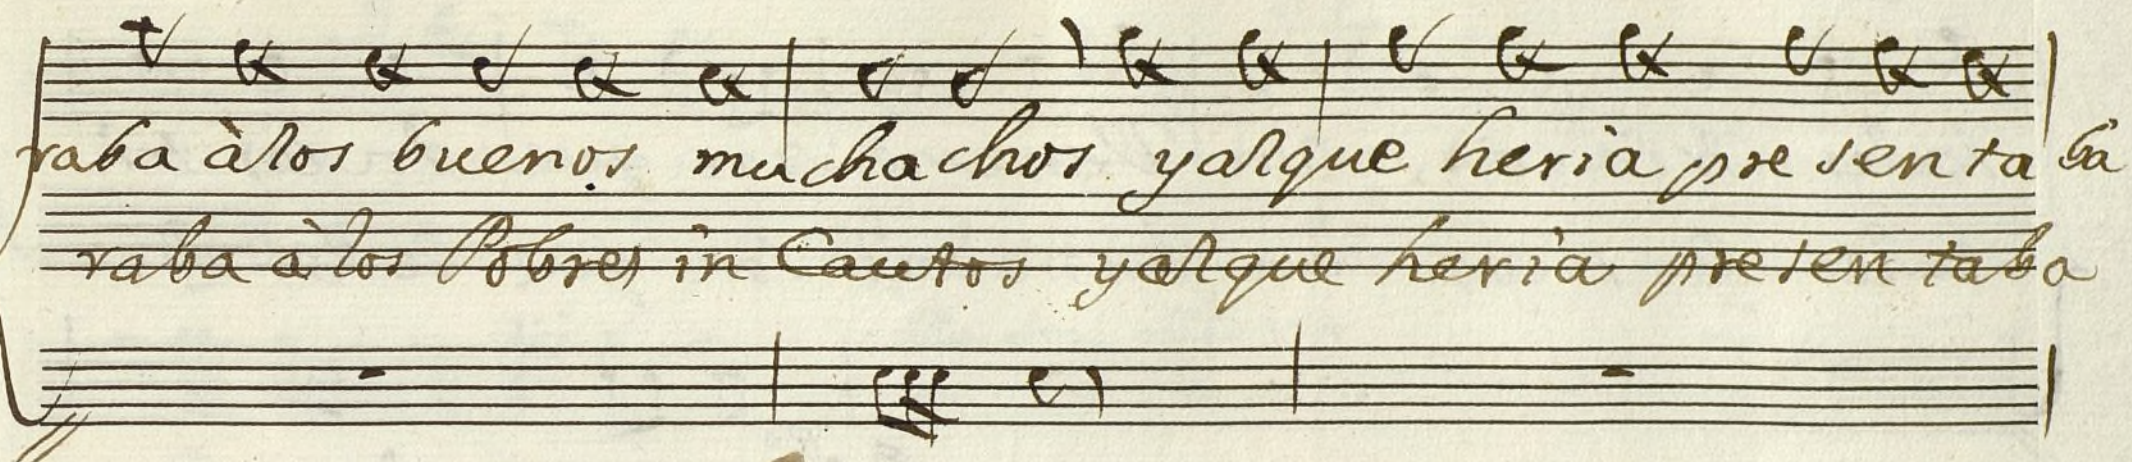 raba à los buenos muchachos yalque heria pre sen ta ba
raba à los Pobres in Cautos yalque heria pre sen taba